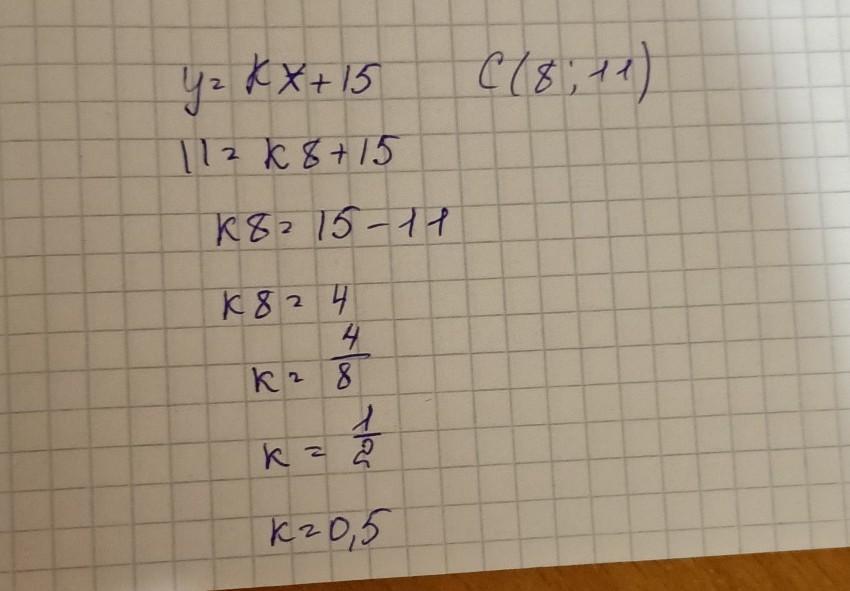 y = kx + 15 C(8; 11)
11 = k8 + 15
k8 = 15 - 11
k8 = 4
k = 4/8
k = 1/2
k = 0,5